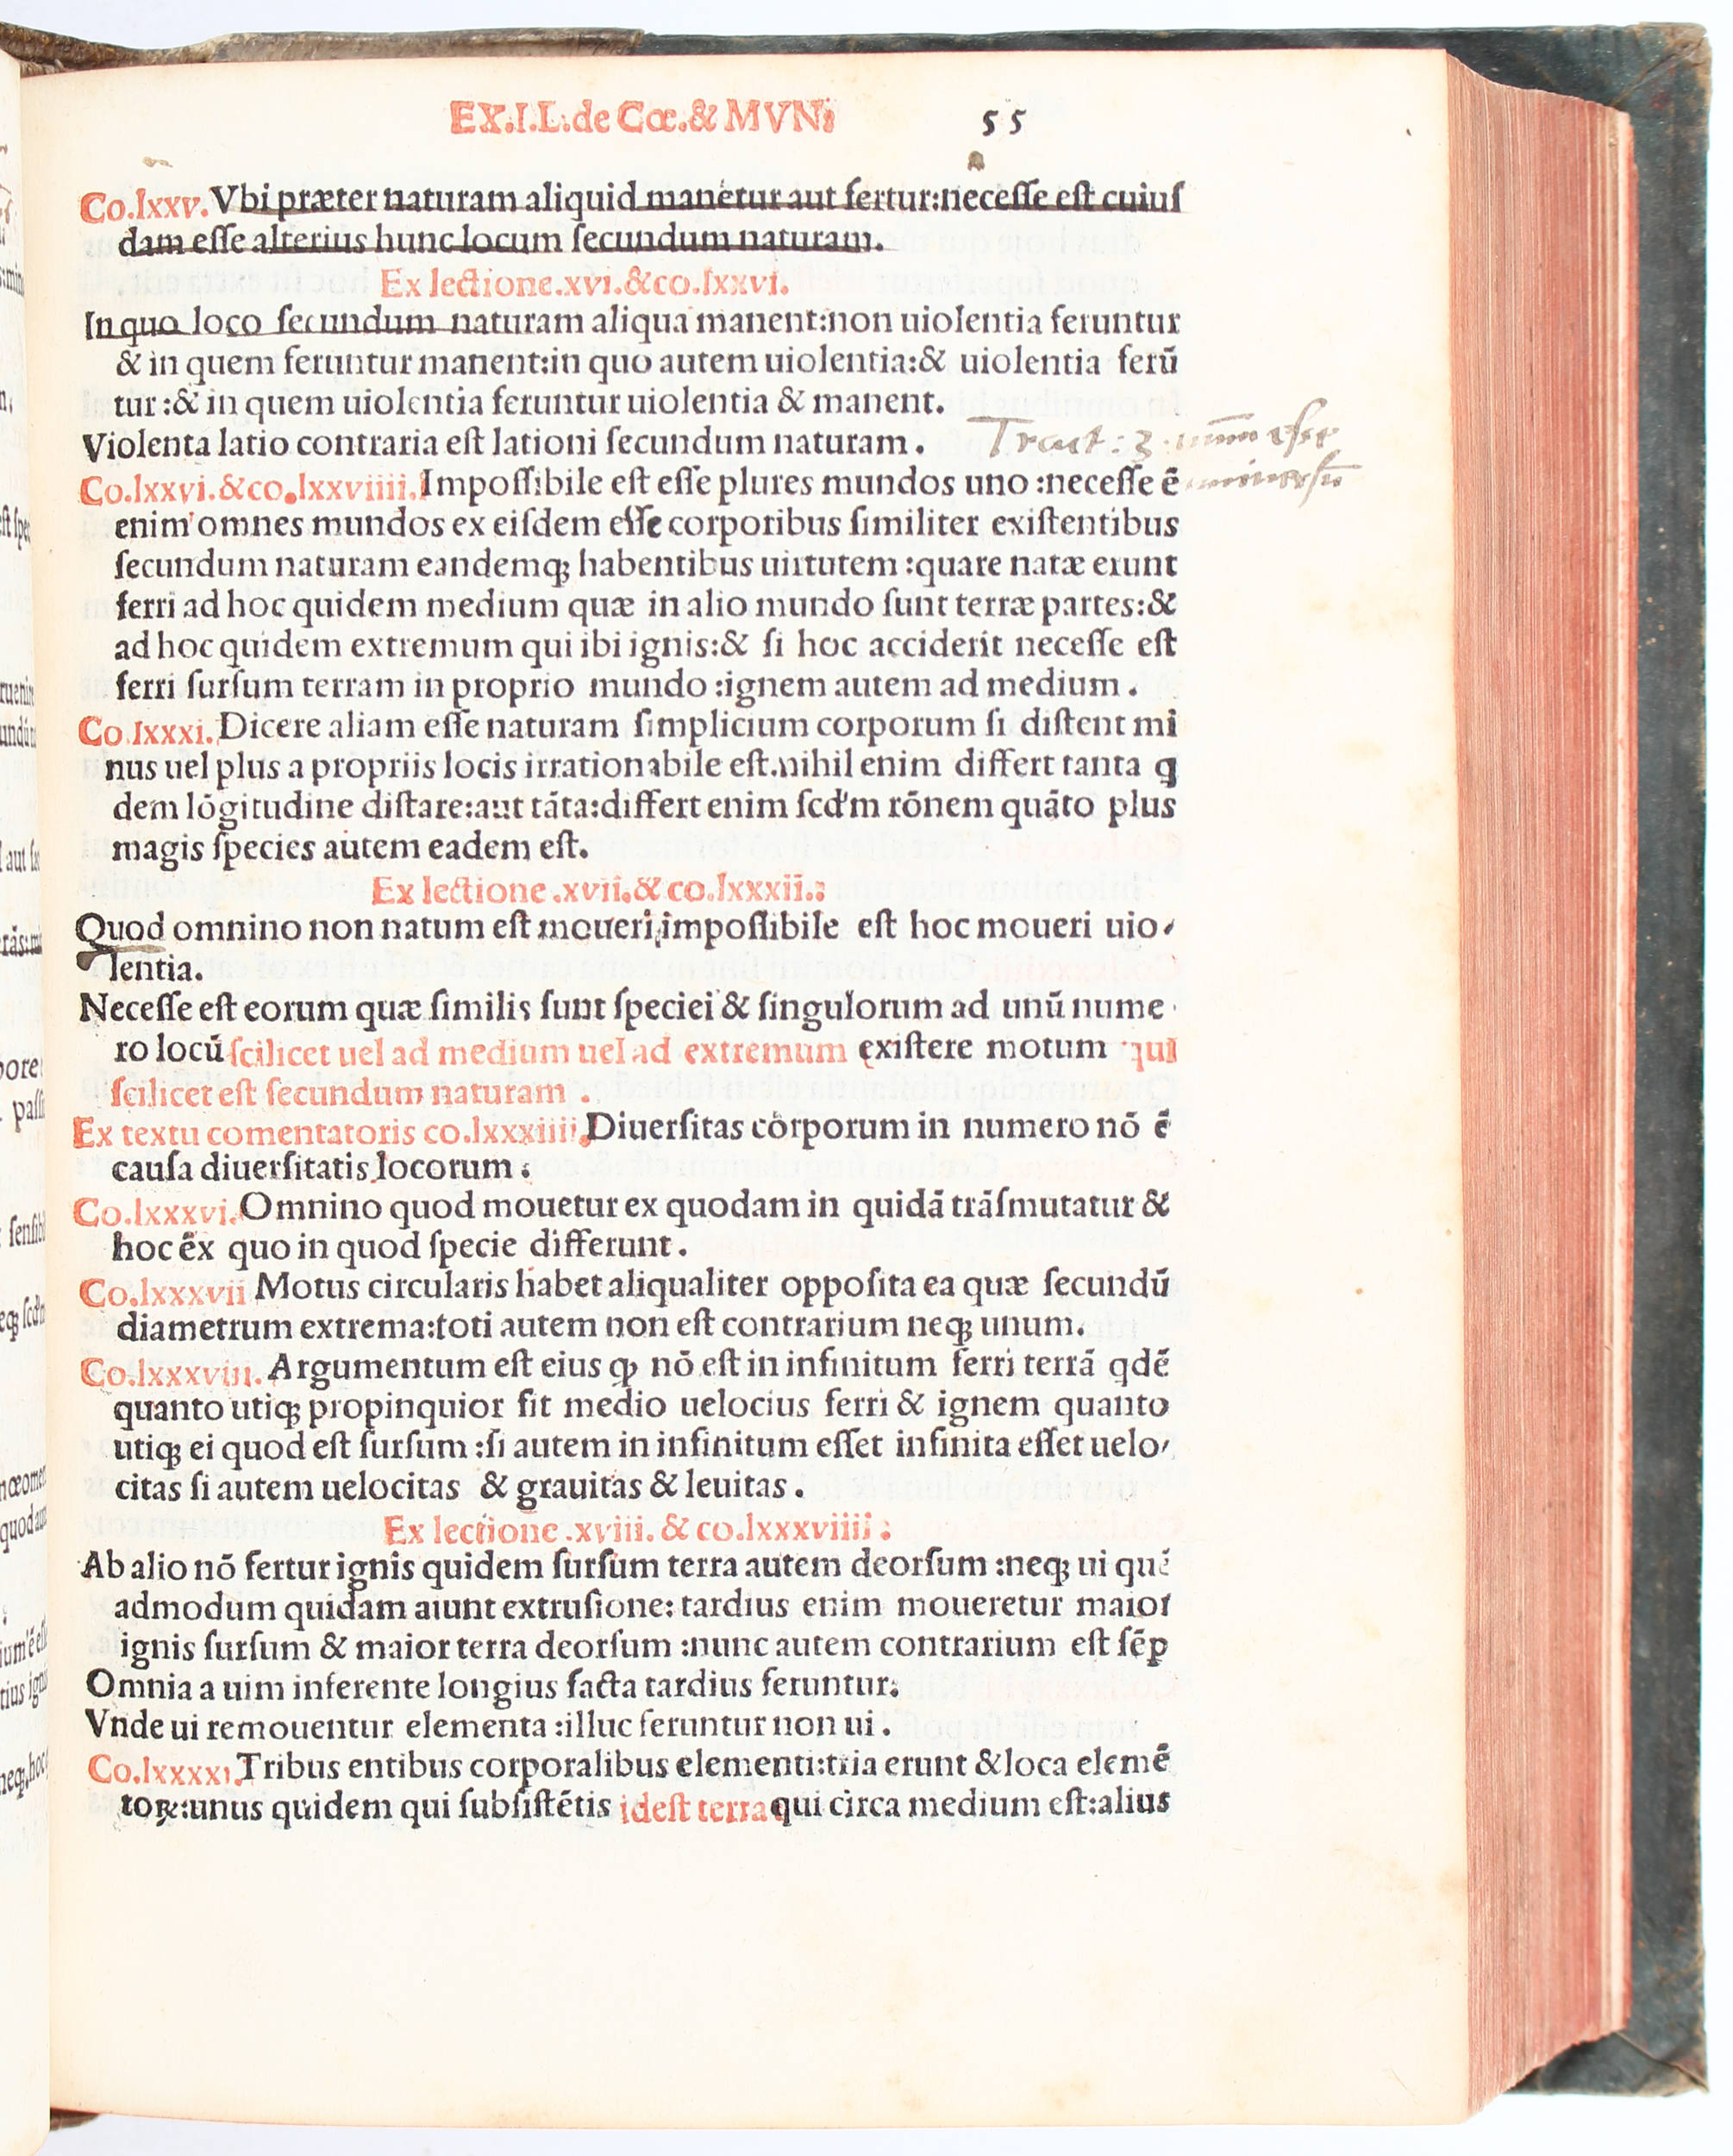 EX.I.L.de Cœ.& MVNi
55
Co.lxxv. Vbi præter naturam aliquid manetur aut fertur:necesſe eſt cuiuſ
dam eſſe alterius hunc locum ſecundum naturam.
Ex lectione.xvi.&co.lxxvi.
In quo loco ſecundum naturam aliqua manent:non uiolentia feruntur
& in quem feruntur manent:in quo autem uiolentia:& uiolentia ferū
tur:& in quem uiolentia feruntur uiolentia & manent.
Violenta latio contraria eſt lationi ſecundum naturam.
Tract: 3.
Co.lxxvi.&co.lxxviiii.Impoſſibile eſt eſſe plures mundos uno:neceſſe ē
enim omnes mundos ex eiſdem eſſe corporibus ſimiliter exiſtentibus
ſecundum naturam eandemq; habentibus uirtutem:quare natæ erunt
ferri ad hoc quidem medium quæ in alio mundo ſunt terræ partes:&
ad hoc quidem extremum qui ibi ignis:& ſi hoc acciderit neceſſe eſt
ferri ſurſum terram in proprio mundo:ignem autem ad medium.
Co.lxxxi.Dicere aliam eſſe naturam ſimplicium corporum ſi diſtent mi
nus uel plus a propriis locis irrationabile eſt.nihil enim differt tanta q
dem lōgitudine diſtare:aut tāta:differt enim ſcd'm rōnem quāto plus
magis ſpecies autem eadem eſt.
Ex lectione.xvii.& co.lxxxii.:
Quod omnino non natum eſt moueri,impoſſibile eſt hoc moueri uio-
lentia.
Neceſſe eſt eorum quæ ſimilis ſunt ſpeciei & ſingulorum ad unū nume
ro locū ſcilicet uel ad medium uel ad extremum exiſtere motum qui
ſcilicet eſt ſecundum naturam.
Ex textu comentatoris co.lxxxiiii.Diuerſitas corporum in numero nō ē
cauſa diuerſitatis locorum.
Co.lxxxvi.Omnino quod mouetur ex quodam in quidā trāſmutatur &
hoc ēx quo in quod ſpecie differunt.
Co.lxxxvii Motus circularis habet aliqualiter oppoſita ea quæ ſecundū
diametrum extrema:toti autem non eſt contrarium neq; unum.
Co.lxxxviii.Argumentum eſt eius ꝙ nō eſt in infinitum ferri terrā qdē
quanto utiq; propinquior ſit medio uelocius ferri & ignem quanto
utiq; ei quod eſt ſurſum:ſi autem in infinitum eſſet infinita eſſet uelo-
citas ſi autem uelocitas & grauitas & leuitas.
Ex lectione.xviii.& co.lxxxviiii:
Ab alio nō fertur ignis quidem ſurſum terra autem deorſum:neq; ui quē
admodum quidam aiunt extruſione:tardius enim moueretur maior
ignis ſurſum & maior terra deorſum:nunc autem contrarium eſt ſēp
Omnia a uim inferente longius facta tardius feruntur:
Vnde ui remouentur elementa:illuc feruntur non ui.
Co.lxxxxi.Tribus entibus corporalibus elementi:tria erunt &loca elemē
toꝝ:unus quidem qui ſubſiſtētis ideſt terra qui circa medium eſt:alius